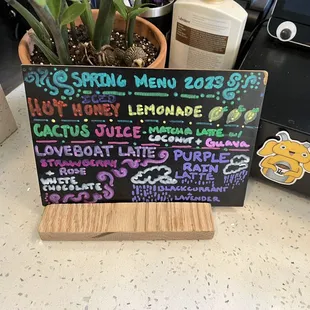 SPRING MENU 2023
ICED
HOT HONEY LEMONADE
CACTUS JUICE - MATCHA LATTE w/
COCONUT & GUAVA
LOVEBOAT LATTE
STRAWBERRY
ROSE
WHITE
CHOCOLATE
PURPLE
RAIN
LATTE
BLACKCURRANT
LAVENDER